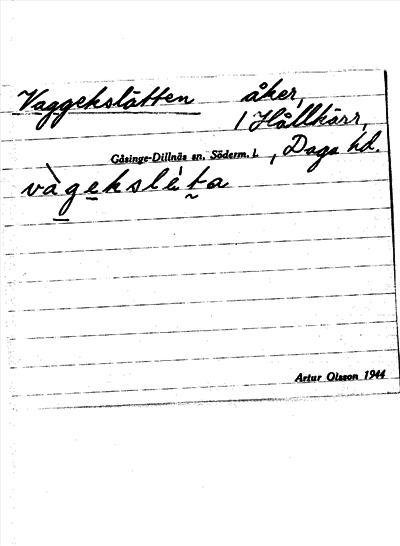 Vaggekslätten åker,
1 Hållkärr,
Gåsinge-Dillnäs sn, Söderm. l. , Daga hd.
vàgekslèta
Artur Olsson 1944